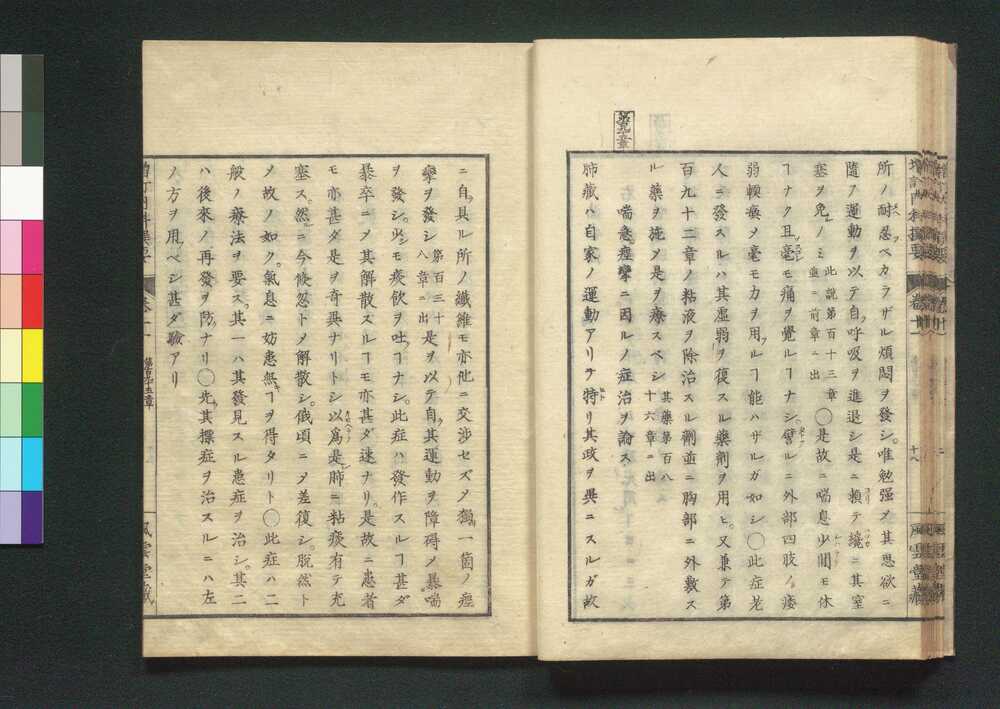 所ノ耐忍ベカラザル煩悶ヲ發シ。唯勉强メ其思欲ニ
隨フ運動ヲ以テ自ラ呼吸ヲ進退シ是ニ頼テ纔ニ其窒
塞ヲ免ノミ 此説第百十三章並ニ前章ニ出 ◯是故ニ喘息少間モ休
ヿナク且毫モ痛ヲ覺ルヿナシ。譬ルニ外部四肢ノ痿
弱輭癱メ毫モ力ヲ用フルヿ能ハザルガ如シ◯此症老
人ニ發スルハ其虛弱ヲ復スル藥劑ヲ用ヒ。又兼テ第
百九十二章ノ粘液ヲ除治スル劑並ニ胸部ニ外敷ス
ル藥ヲ施メ是ヲ療スベシ 其藥第百八十六章ニ出
第五章
喘息痙攣ニ因ルノ症治ヲ論ス
肺藏ハ自家ノ運動アリテ特リ其政ヲ異ニスルガ故
增訂內科撰要
卷十一
十八
風雲堂藏
ニ自具ル所ノ纖維モ亦他ニ交涉セズメ獨一箇ノ痙
攣ヲ發シ 第百三十八章ニ出 是ヲ以テ自ラ其運動ヲ障碍メ暴喘
ヲ發シ。少シモ痰飲ヲ吐ヿナシ。此症ハ發作スルヿ甚ダ
暴卒ニメ其解散スルヿモ亦甚ダ速ナリ。是故ニ患者
モ亦甚ダ是ヲ奇異ナリトシ以爲ク是レ肺ニ粘痰有テ充
塞ス。然ニ今倏忽トメ解散シ。俄頃ニメ差復シ。脫然ト
メ故ノ如ク。氣息ニ妨患無キヿヲ得タリト◯此症ハ二
般ノ療法ヲ要ス。其一ハ其發見スル患症ヲ治シ。其二
ハ後來ノ再發ヲ防グナリ◯先其標症ヲ治スルニハ左
ノ方ヲ用フベシ甚ダ驗アリ
風雲堂藏